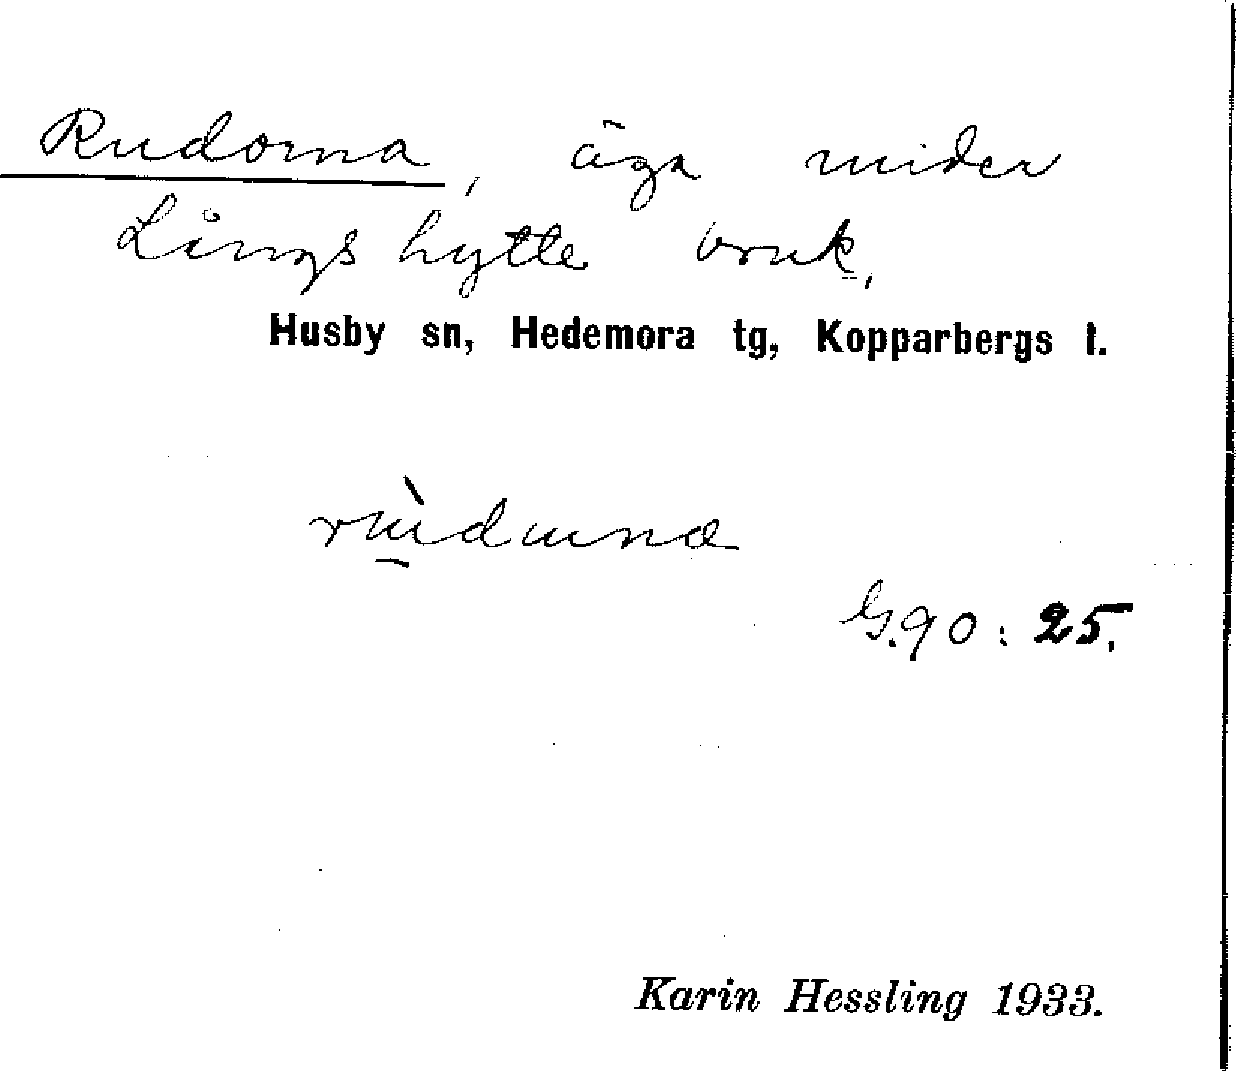 Rudorna, äga under
Långshytte bruk,
Husby sn, Hedemora tg, Kopparbergs l.
rùdmna
G.90: 25.
Karin Hessling 1933.